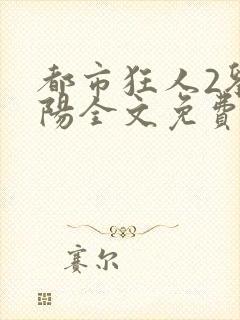 都市狂人2
陽全文免費
賽尔